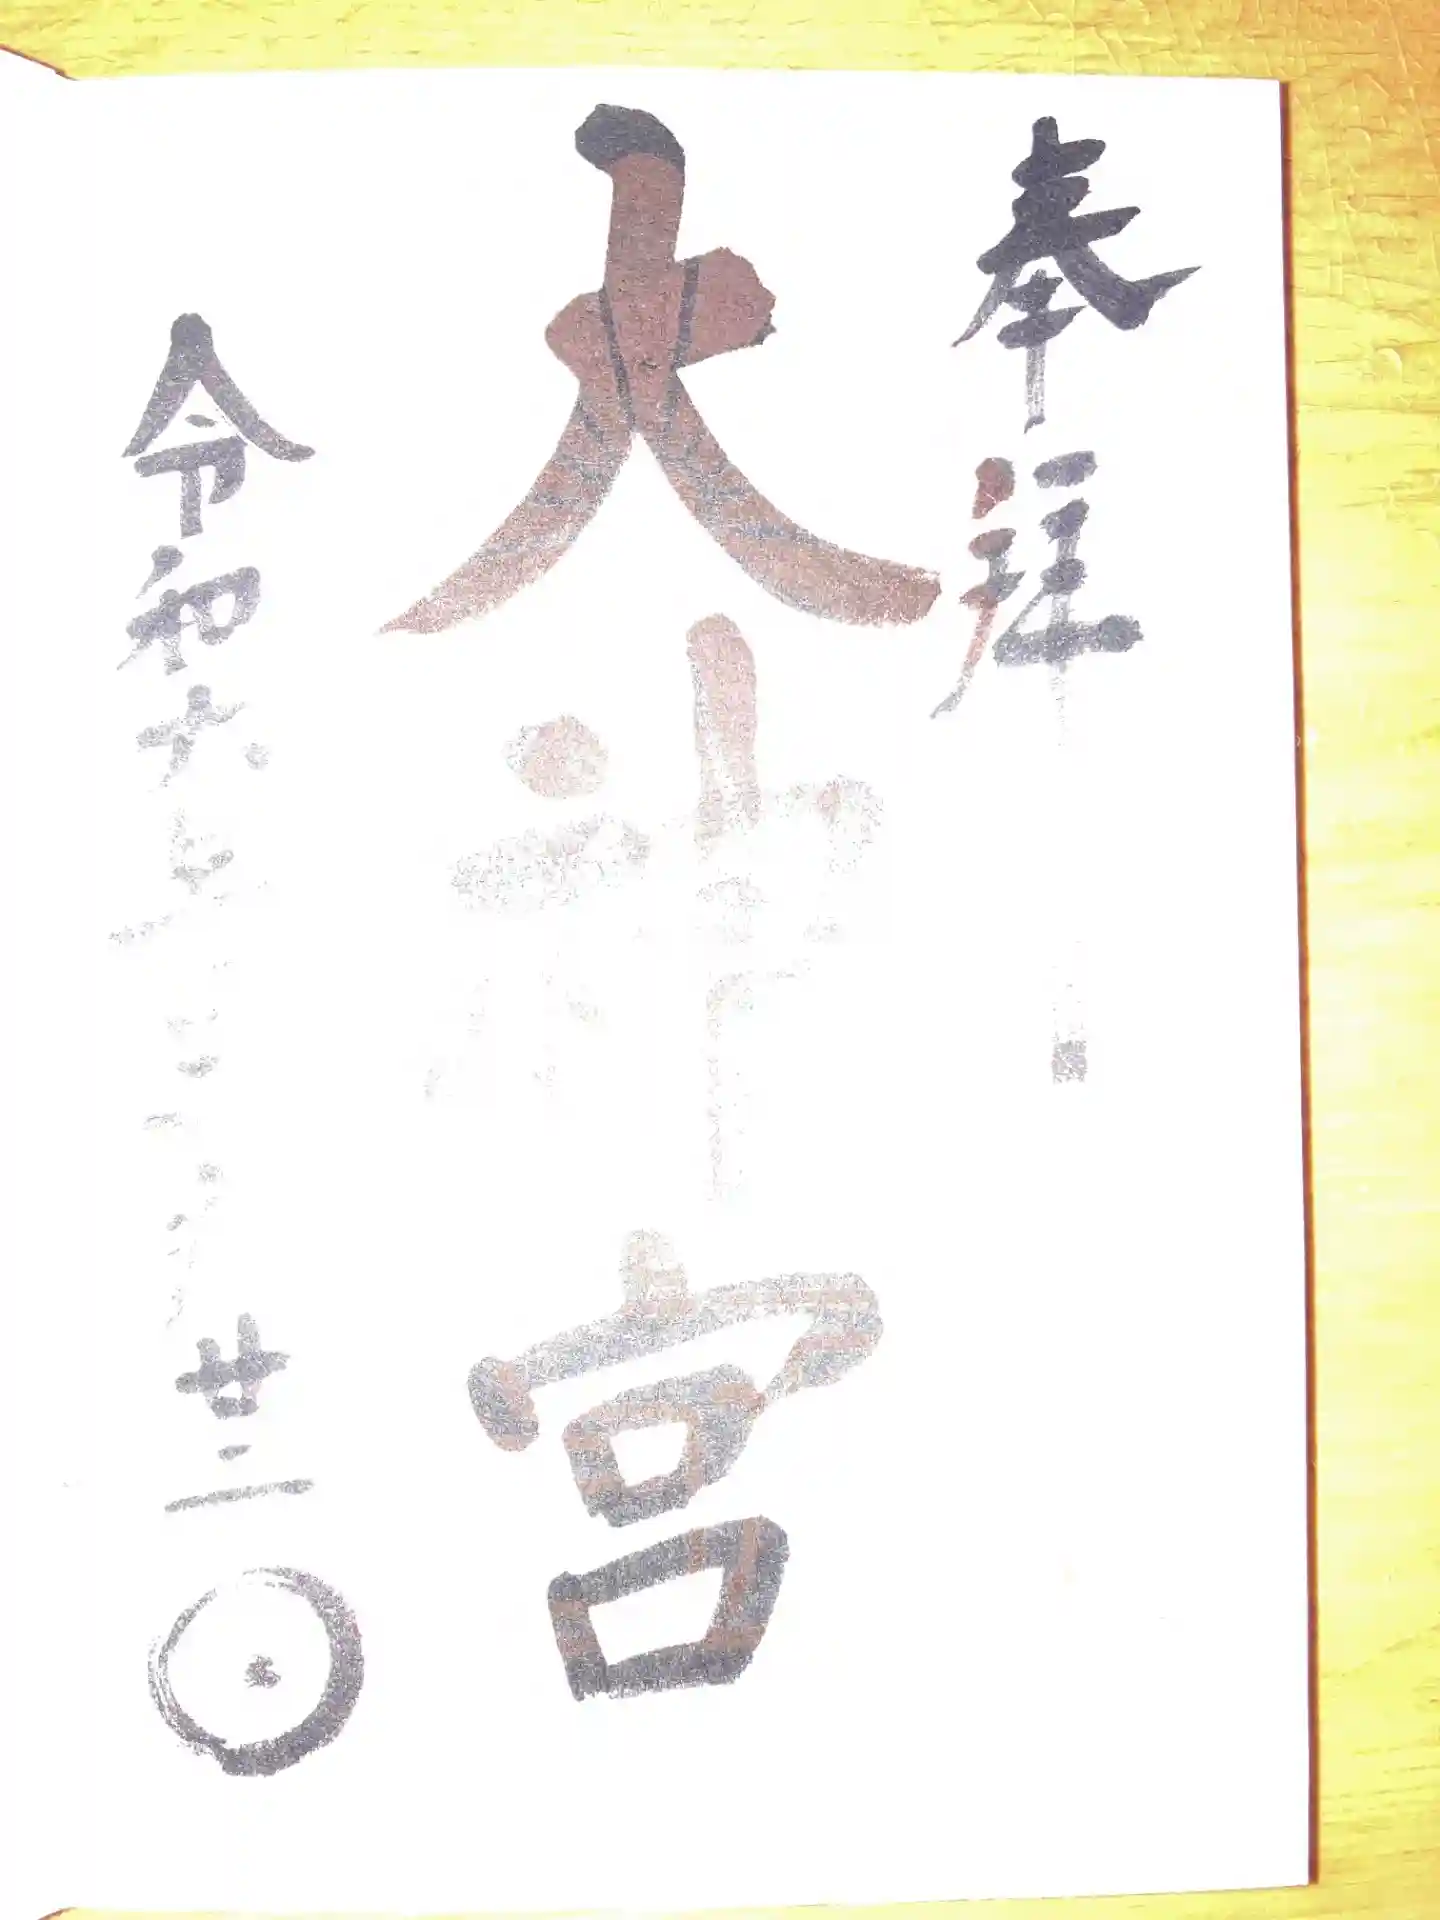 奉拝
大神宮
令和六年 月廿二⊙